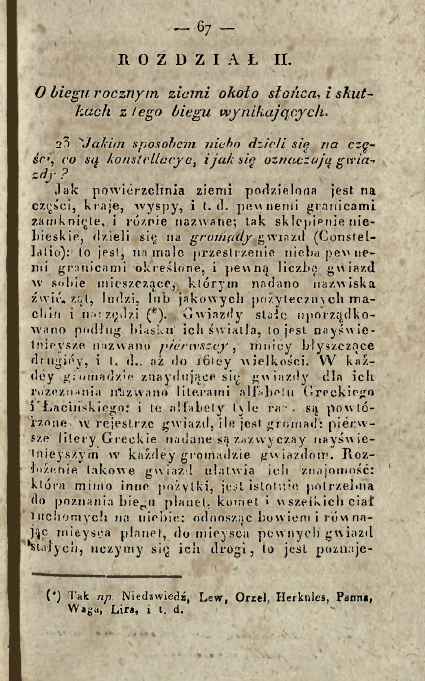 — 67 —
ROZDZIAŁ II.
O biegu rocznym ziemi około słońca, i skut-
kach z tego biegu wynikających.
23 Jakim sposobem niebo dzieli się na czę-
ści, co są konstellacye, i jak się oznaczają gwia-
zdy?
Jak powiérzchnia ziemi podzielona jest na
części, kraje, wyspy, i t. d. pewnemi granicami
zamknięte, i różnie nazwane; tak sklepienie nie-
bieskie, dzieli się na gromady gwiazd (Constel-
latio): to jest, na małe przestrzenie nieba pewne-
mi granicami określone, i pewną liczbę gwiazd
w sobie mieszczące, którym nadano nazwiska
źwiérząt, ludzi, lub jakowych pożytecznych ma-
chin i narzędzi (*). Gwiazdy stałe uporządko-
wano podług blasku ich światła, to jest nayświe-
tnieysze nazwano pierwszey, mniey błyszczące
drugiéy, i t. d. aż do 16tey wielkości. W każ-
déy gromadzie znaydujące się gwiazdy dla ich
rozeznania nazwano literami alfabetu Greckiego
i Łacińskiego; i te alfabety tyle razy są powtó-
rzone w rejestrze gwiazd, ile jest gromad: piérw-
sze litery Greckie nadane są zazwyczay nayświe-
tnieyszym w każdéy gromadzie gwiazdom. Roz-
łożenie takowe gwiazd ułatwia ich znajomość:
która mimo inne pożytki, jest istotnie potrzebna
do poznania biegu planet, komet i wszelkich ciał
ruchomych na niebie: odnosząc bowiem i równa-
jąc mieysca planet, do mieysca pewnych gwiazd
stałych, uczymy się ich drogi, to jest poznaje-
(*) Tak np. Niedźwiedź, Lew, Orzeł, Herkules, Panna,
Waga, Lira, i t. d.